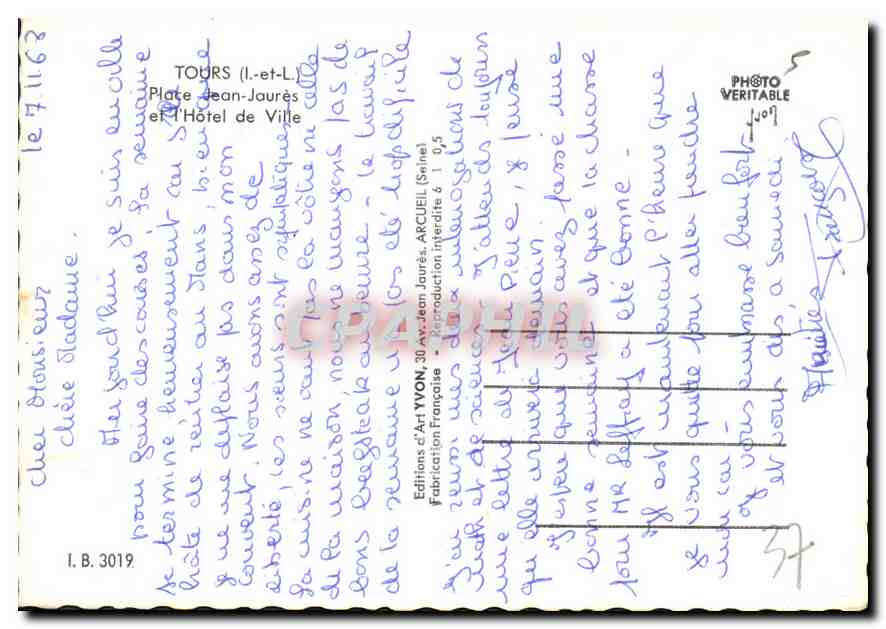 TOURS (I.-et-L.)
Place Jean-Jaurès
et l'Hôtel de Ville
PHOTO
VERITABLE
yvon
5
Editions d'Art YVON, 30 Av. Jean Jaurès, ARCUEIL (Seine)
Fabrication Française - Reproduction interdite 6 1 0,5
I. B. 3019
37
CPAPHIL
le 7.11.63
Cher Monsieur
chère Madame.
Aujourd'hui je suis en ville
pour faire des courses. La semaine
se termine heureusement car j'ai
hâte de rentrer au Mans, bien que
je ne me déplaise pas dans mon
couvent. Nous avons assez de
liberté, les sœurs sont sympatiques
La cuisine ne vaut pas la vôtre ni celle
de la maison nous ne mangeons pas de
bons beefsteak au beurre - le travail
de la semaine n'a pas été trop difficile
J'ai réussi mes deux interrogations de
math et de sciences. J'attends toujours
une lettre de Jean Pierre, je pense
qu'elle arrivera demain
J'espère que vous avez passé une
bonne semaine et que la chasse
pour Mr a été bonne -
Il est maintenant l'heure que
je vous quitte pour aller prendre
mon car -
Je vous embrasse bien fort
et vous dis à samedi